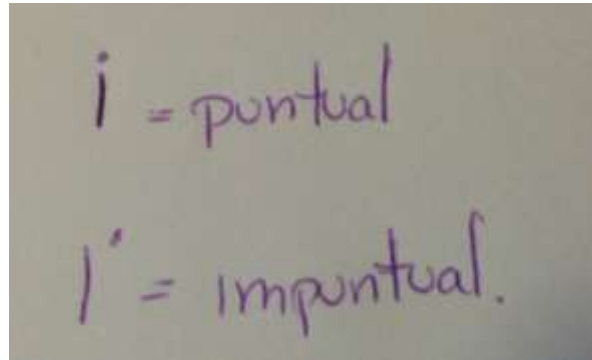 i = puntual
i = impuntual.